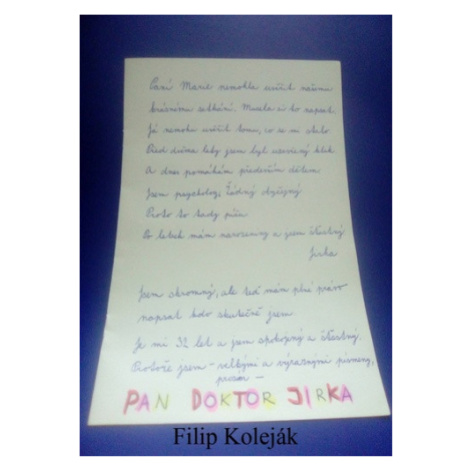 Paní Marie nemohla uvěřit našemu
krásnému setkání. Musela si to napsat.
Já nemohu uvěřit tomu, co se mi stalo
Před dvěma lety jsem byl uzavřený kluk
A dnes pomáhám především dětem
Jsem psycholog, žádný obyčejný
Proto to tady píšu
Po letech mám narozeniny a jsem šťastný
Jirka
Jsem skromný, ale teď mám plné právo
napsat kdo skutečně jsem
Je mi 32 let a jsem spokojený a šťastný.
Protože jsem - velkými a výraznými písmeny,
prosím -
PAN DOKTOR JIRKA
Filip Koleják